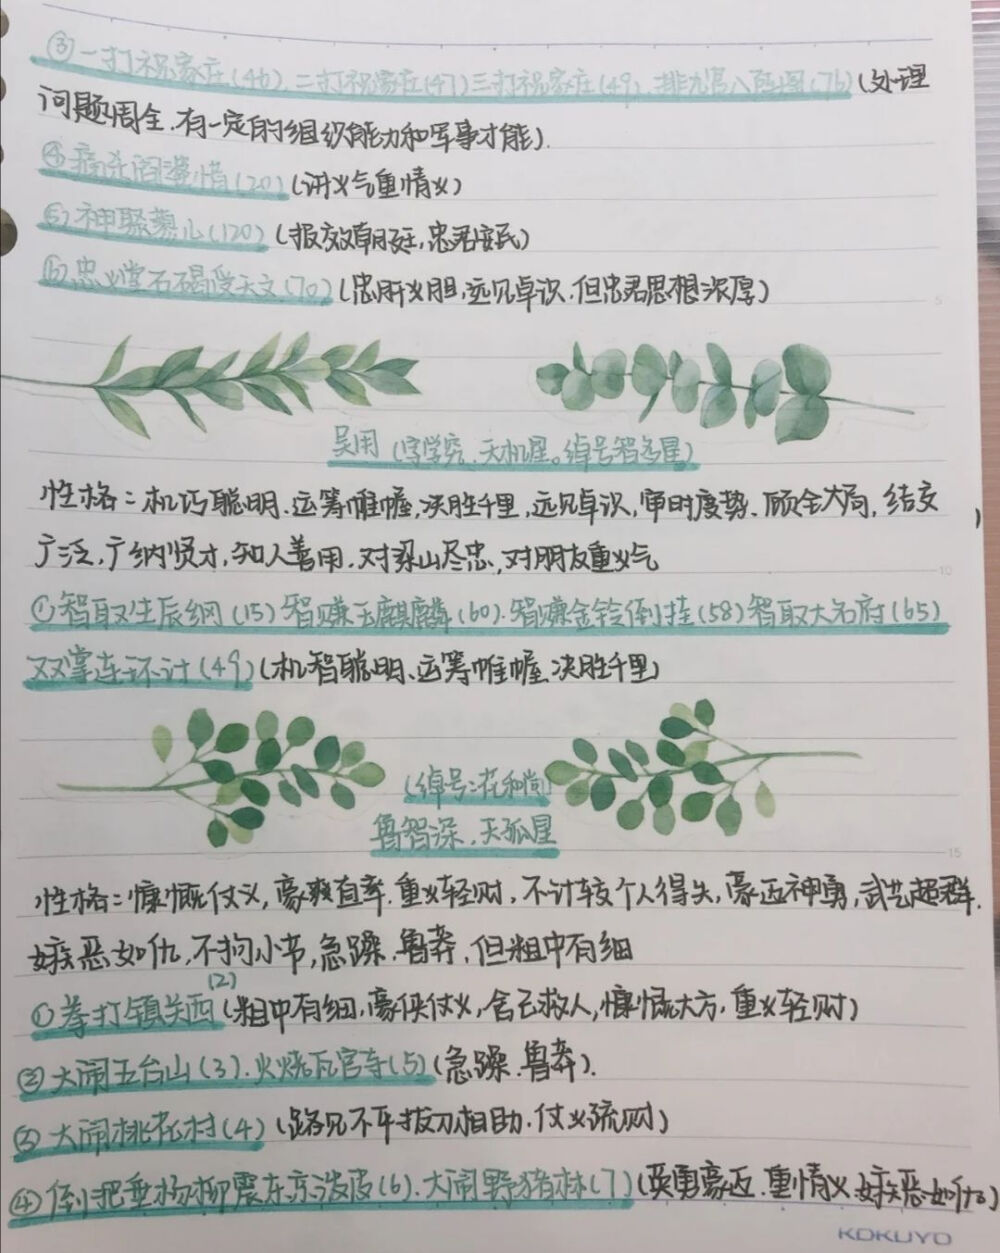 ③一打祝家庄(46)、二打祝家庄(47)三打祝家庄(49)、排九宫八卦阵(76)(处理
问题周全、有一定的组织能力和军事才能).
④痛杀阎婆惜(20)(讲义气重情义)
⑤神聚蓼儿(120)(报效朝廷,忠君安民)
⑥忠义堂石碣受天文(70)(忠肝义胆,远见卓识.但忠君思想浓厚)
5
吴用(字学究、天机星。绰号智多星)
性格:机巧聪明、运筹帷幄,决胜千里,远见卓识,审时度势、顾全大局,结交
广泛,广纳贤才,知人善用.对梁山尽忠,对朋友重义气
10
①智取生辰纲(15)智赚玉麒麟(60).智赚金铃倒挂(58)智取大名府(65)
双掌连环计(49)(机智聪明、运筹帷幄、决胜千里)
(绰号:花和尚)
鲁智深.天孤星
15
性格:慷慨仗义,豪爽直率.重义轻财,不计较个人得失,豪迈神勇,武艺超群.
嫉恶如仇,不拘小节,急躁.鲁莽,但粗中有细
①拳打镇关西(2)(粗中有细,豪侠仗义,舍己救人,慷慨大方,重义轻财)
②大闹五台山(3).火烧瓦官寺(5)(急躁.鲁莽).
③大闹桃花村(4)(路见不平拔刀相助.仗义疏财)
④倒把垂杨柳震东京泼皮(6).大闹野猪林(7)(英勇豪迈.重情义.嫉恶如仇)
KOKUYO